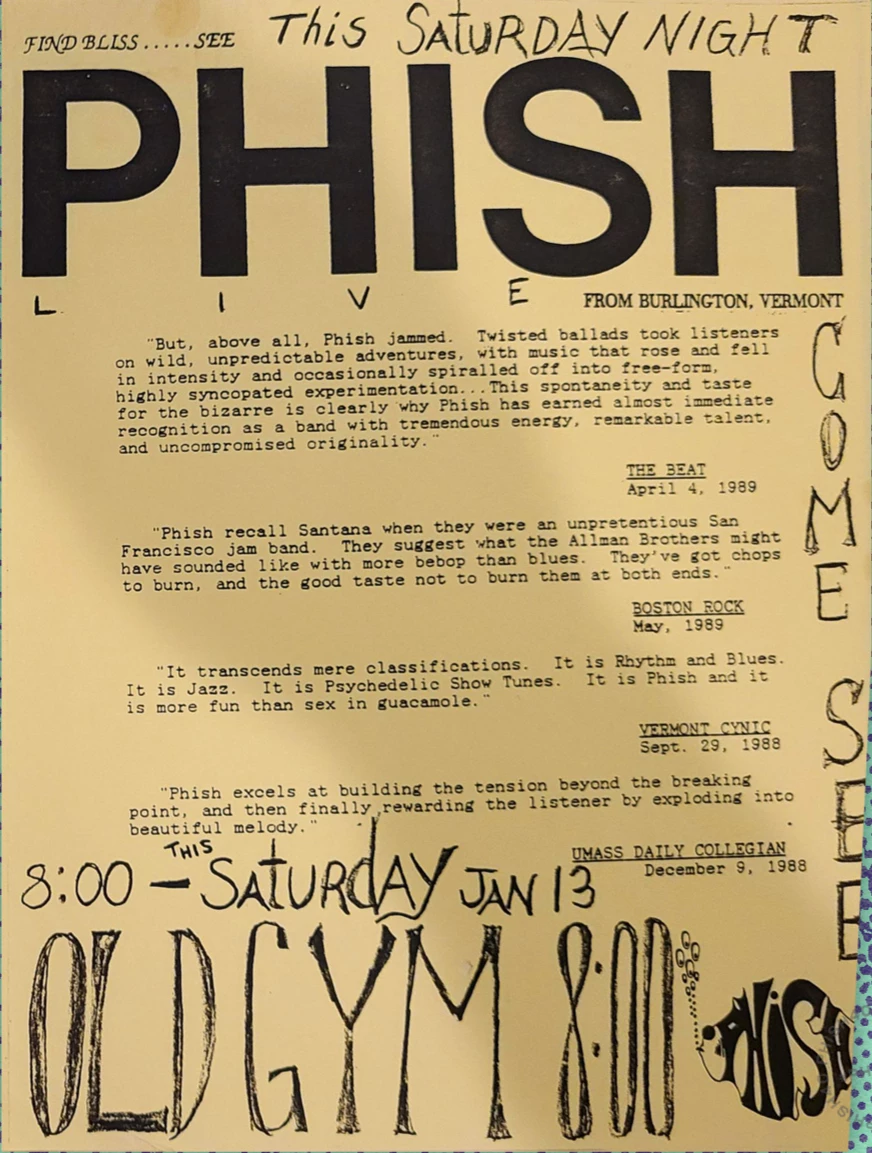 FIND BLISS.....SEE This SATURDAY NIGHT
PHISH
LIVE FROM BURLINGTON, VERMONT
"But, above all, Phish jammed. Twisted ballads took listeners
on wild, unpredictable adventures, with music that rose and fell
in intensity and occasionally spiralled off into free-form,
highly syncopated experimentation...This spontaneity and taste
for the bizarre is clearly why Phish has earned almost immediate
recognition as a band with tremendous energy, remarkable talent,
and uncompromised originality."
THE BEAT
April 4, 1989
"Phish recall Santana when they were an unpretentious San
Francisco jam band. They suggest what the Allman Brothers might
have sounded like with more bebop than blues. They've got chops
to burn, and the good taste not to burn them at both ends."
BOSTON ROCK
May, 1989
"It transcends mere classifications. It is Rhythm and Blues.
It is Jazz. It is Psychedelic Show Tunes. It is Phish and it
is more fun than sex in guacamole."
VERMONT CYNIC
Sept. 29, 1988
"Phish excels at building the tension beyond the breaking
point, and then finally rewarding the listener by exploding into
beautiful melody."
UMASS DAILY COLLEGIAN
December 9, 1988
COME SEE
8:00 - THIS SATURDAY JAN 13
OLD GYM 8:00
PHISH